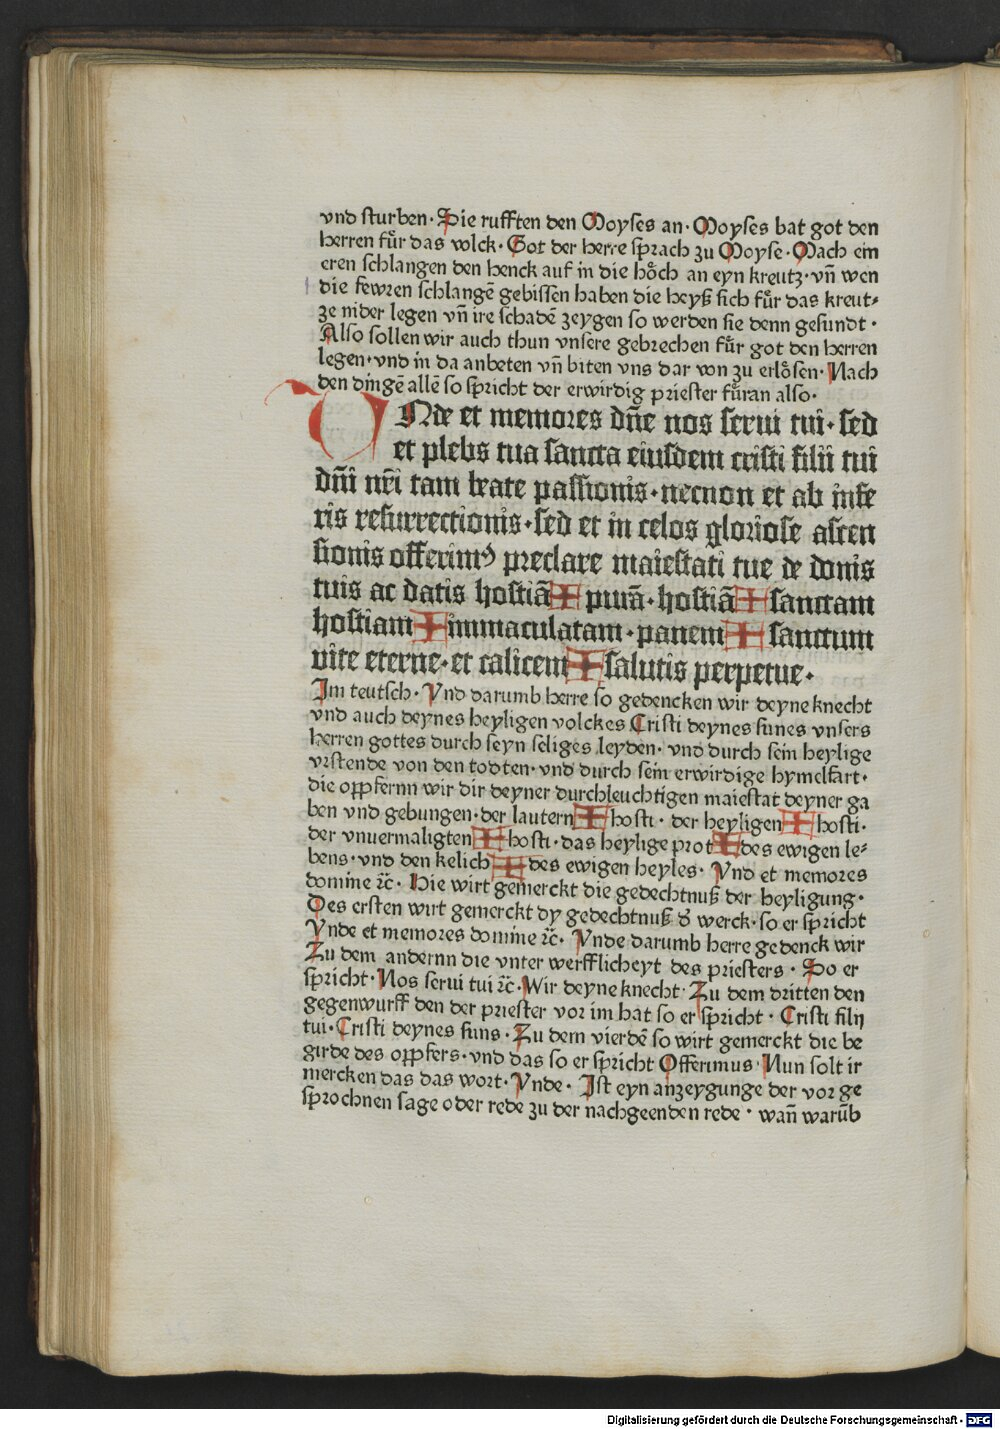 vnd sturben· Die rufften den Moyses an· Moyses bat got den
herren fuͤr das volck· Got der herre sprach zu Moyse· Mach ein
eren schlangen den henck auf in die hoͤch an eyn kreutz· vn̄ wen
die fewren schlangē gebissen haben die heyß sich fuͤr das kreut⸗
ze nider legen vn̄ ire schadē zeygen so werden sie denn gesundt·
Also sollen wir auch thun vnsere gebrechen fuͤr got den herren
legen· vnd in da anbeten vn̄ biten vns dar von zu erloͤsen· Nach
den dingē allē so spricht der erwirdig priester fuͤran also·
VNde et memores dn̄e nos serui tui· sed
et plebs tua sancta eiusdem cristi filii tui
dn̄i nr̄i tam beate passionis· necnon et ab infe
ris resurrectionis· sed et in celos gloriose ascen
sionis offerimꝰ preclare maiestati tue de donis
tuis ac datis hostiā ✠ purā· hostiā ✠ sanctam
hostiam ✠ immaculatam· panem ✠ sanctum
vite eterne· et calicem ✠ salutis perpetue·
Im teutsch· Vnd darumb herre so gedencken wir deyne knecht
vnd auch deynes heyligen volckes Cristi deynes sunes vnsers
herren gottes durch seyn seliges leyden· vnd durch sein heylige
vrstende von den todten· vnd durch sein erwirdige hymelfart·
die oppfernn wir dir deyner durchleuchtigen maiestat deyner ga
ben vnd gebungen· der lautern ✠ hosti· der heyligen ✠ hosti·
der vnuermaligten ✠ hosti· das heylige prot ✠ des ewigen le⸗
bens· vnd den kelich ✠ des ewigen heyles· Vnd et memores
domine ꝛc̄· Hie wirt gemerckt die gedechtnuß der heyligung·
Des ersten wirt gemerckt dy gedechtnuß d' werck· so er spricht
Vnde et memores domine ꝛc̄· Vnde darumb herre gedenck wir
Zu dem andernn die vnter werfflicheyt des priesters· Do er
spricht· Nos serui tui ꝛc̄· Wir deyne knecht· Zu dem dritten den
gegenwurff den der priester vor im hat so er spricht· Cristi filij
tui· Cristi deynes suns· Zu dem vierdē so wirt gemerckt die be
girde des oppfers· vnd das so er spricht Offerimus· Nun solt ir
mercken das das wort· Vnde· Ist eyn anzeygunge der vor ge
sprochnen sage oder rede zu der nachgeenden rede· wan̄ warūb
Digitalisierung gefördert durch die Deutsche Forschungsgemeinschaft - DFG